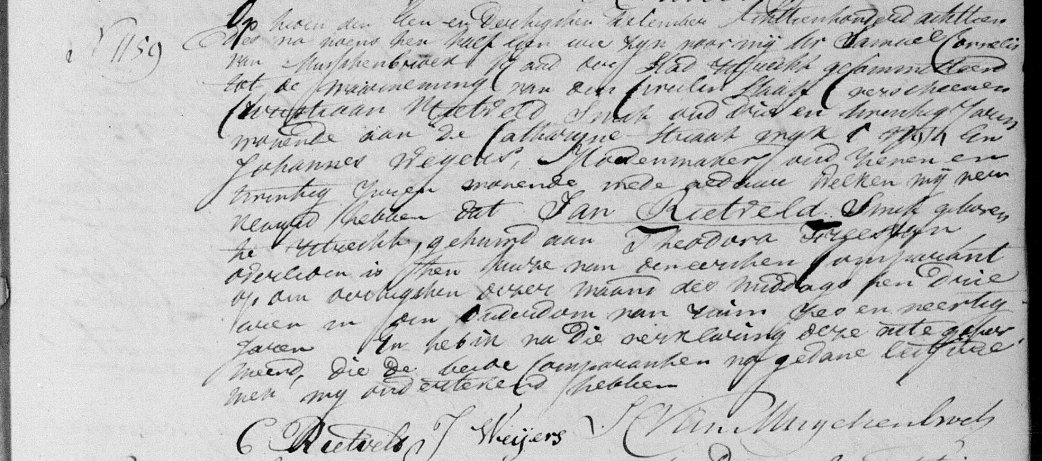 1159
Op heden den Een en Dertigsten December Achttienhonderd achttien
des na noens ten half een ure zyn voor mij Mr Samuel Cornelis
van Musschenbroek, Raad der Stad Utrecht gecommitteerd
tot de waarneming van den Civielen Staat verschenen
Christiaan Rietveld Smit oud drie en twintig Jaren
wonende aan de Catharyne straat wyk C en
Johannes Weijers, oud zeven en
twintig Jaren wonende mede aldaar welken mij
hebben dat Jan Rietveld Smit geboren
te Utrecht, gehuwd aan Theodora
overleden is ten huize van den eersten Comparant
op den dezer maand des middags ten drie
uren in den ouderdom van ruim zes en veertig
Jaren En heb ik na die verklaring deze acte
die de beide Comparanten na gedane
met my ondertekend hebben
C Rietveld J Weijers S C Van Musschenbroek